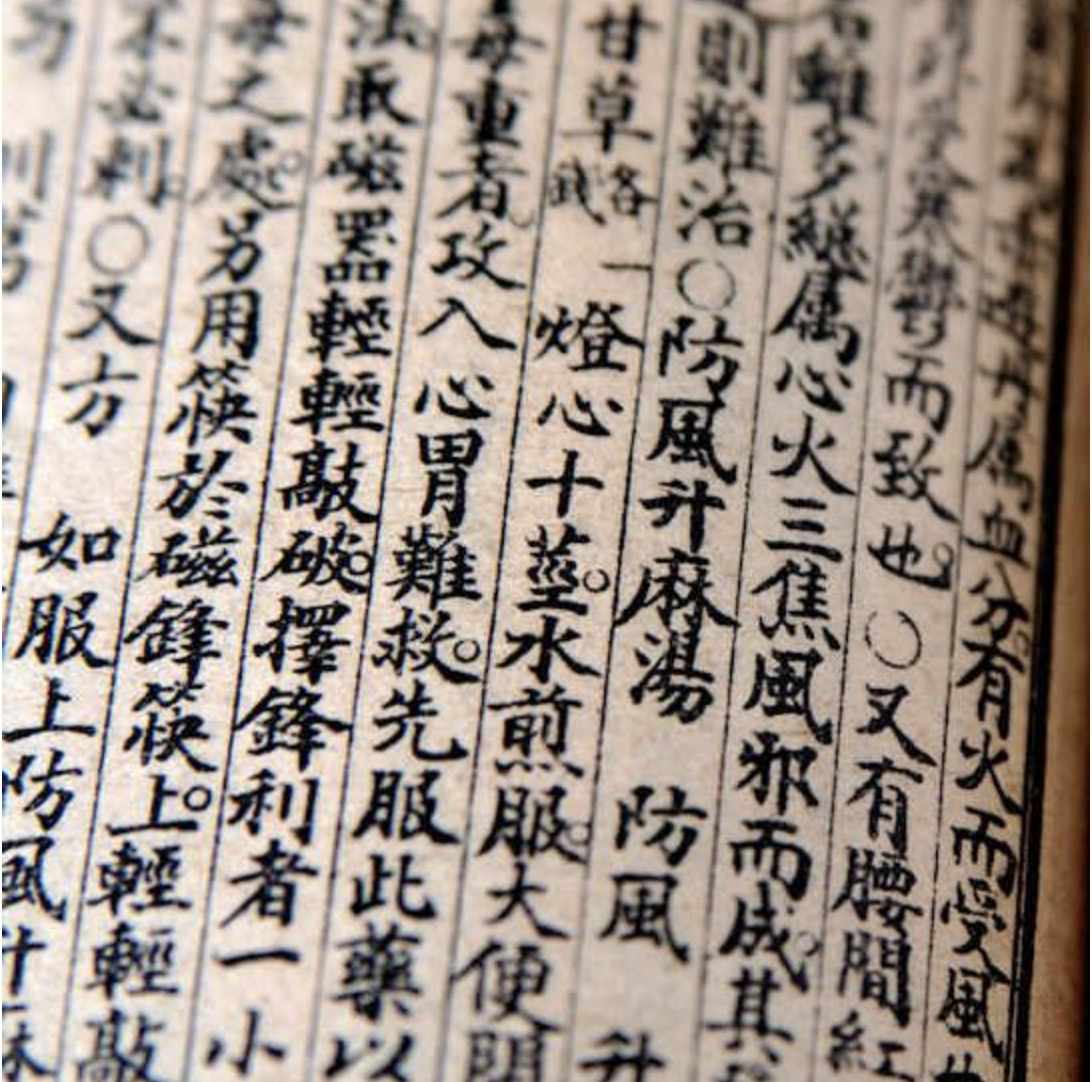 丹属血分有火而受風
寒鬱而致也〇又有腰間紅
雖多纏属心火三焦風邪而成其
則難治〇防風升麻湯 防風 升
甘草各 一 燈心十莖水煎服大便閉
毒重者攻入心胃難救先服此藥以
法取磁器輕輕敲破擇鋒利者一小
毒之處另用筷於磁鋒筷上輕輕敲
必刺〇又方 如服上防風升麻